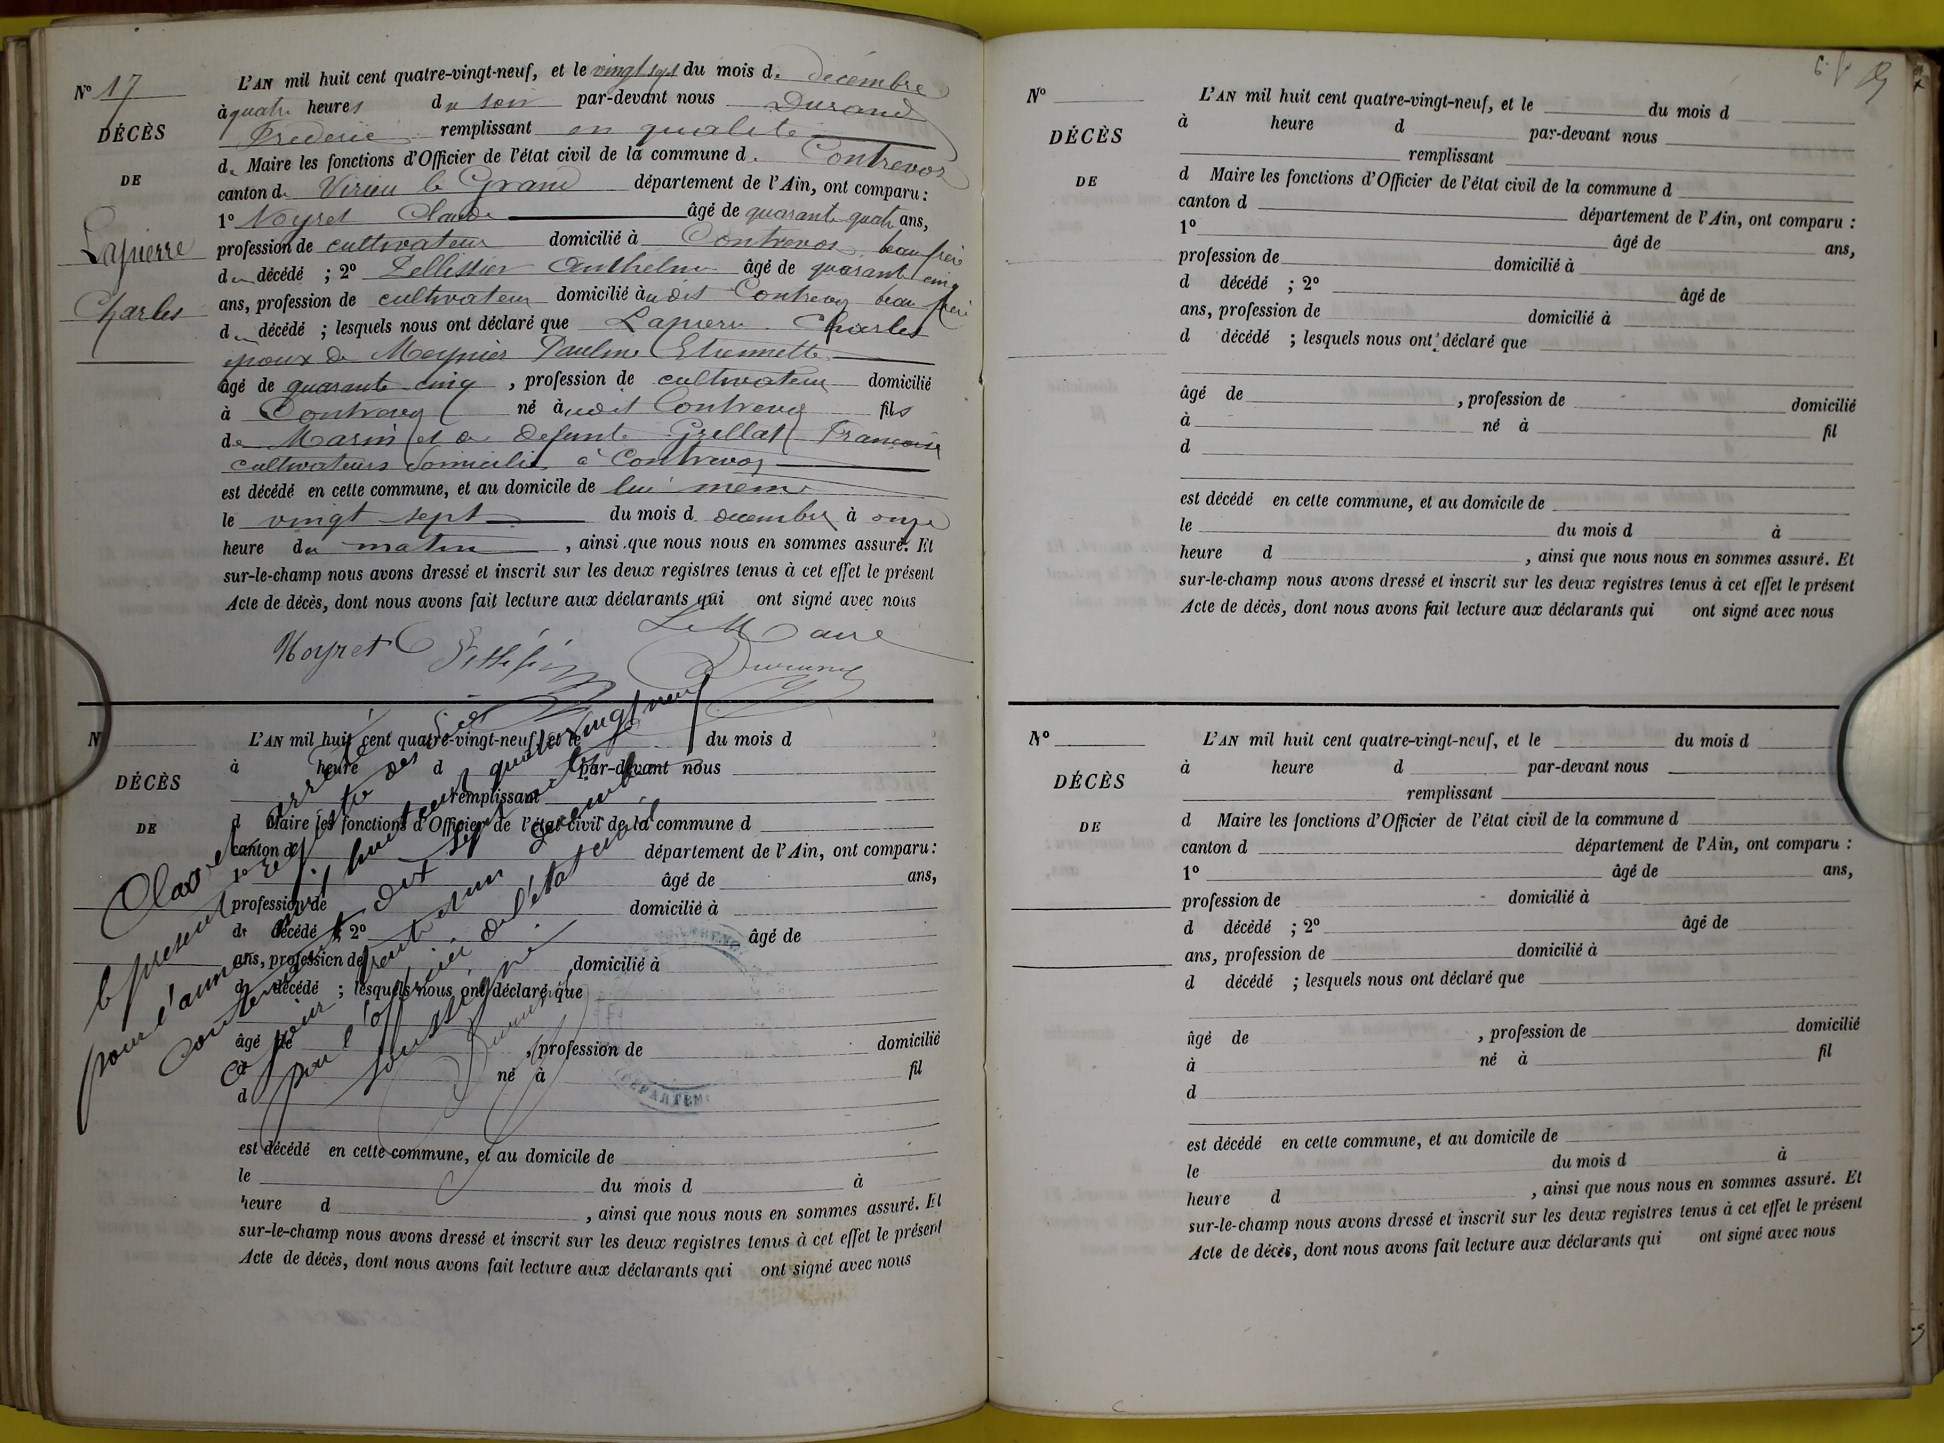 N° 17
DÉCÈS
DE
Lapierre
Charles
L'AN mil huit cent quatre-vingt-neuf, et le vingt sept du mois de decembre
à quatre heures du soir par-devant nous Durand
Frederic remplissant en qualité
de Maire les fonctions d'Officier de l'état civil de la commune de Contrevoz
canton de Virieu le Grand département de l'Ain, ont comparu :
1° Noyret Claude âgé de quarante quatre ans,
profession de cultivateur domicilié à Contrevoz beau frère
du décédé ; 2° Pellissier Anthelme âgé de quarante cinq
ans, profession de cultivateur domicilié à udit Contrevoz beau frère
du décédé ; lesquels nous ont déclaré que Lapierre Charles
époux de Meynier Pauline Etiennette
âgé de quarante cinq , profession de cultivateur domicilié
à Contrevoz né à udit Contrevoz fils
de Marin et de defunte Grellat Françoise
cultivateurs domicilié à Contrevoz
est décédé en cette commune, et au domicile de lui même
le vingt sept du mois d decembre à onze
heure du matin , ainsi que nous nous en sommes assuré. Et
sur-le-champ nous avons dressé et inscrit sur les deux registres tenus à cet effet le présent
Acte de décès, dont nous avons fait lecture aux déclarants qui ont signé avec nous
Le Maire
Noyret C Durand
N
DÉCÈS
DE
L'AN mil huit cent quatre-vingt-neuf, et le du mois d
à heure d par-devant nous
remplissant
d Maire les fonctions d'Officier de l'état civil de la commune d
canton d département de l'Ain, ont comparu :
1° âgé de ans,
profession de domicilié à
d décédé ; 2° âgé de
ans, profession de domicilié à
d décédé ; lesquels nous ont déclaré que
âgé de , profession de domicilié
à né à fil
d
est décédé en cette commune, et au domicile de
le du mois d à
heure d , ainsi que nous nous en sommes assuré. Et
sur-le-champ nous avons dressé et inscrit sur les deux registres tenus à cet effet le présent
Acte de décès, dont nous avons fait lecture aux déclarants qui ont signé avec nous
Clos et arrêté
le présent registre des décès
pour l'année mil huit cent quatre vingt neuf
contenant dix sept actes
ce jour trente et un decembre
par l'officier de l'état civil
soussigné
Durand
N°
DÉCÈS
DE
L'AN mil huit cent quatre-vingt-neuf, et le du mois d
à heure d par-devant nous
remplissant
d Maire les fonctions d'Officier de l'état civil de la commune d
canton d département de l'Ain, ont comparu :
1° âgé de ans,
profession de domicilié à
d décédé ; 2° âgé de
ans, profession de domicilié à
d décédé ; lesquels nous ont déclaré que
âgé de , profession de domicilié
à né à fil
d
est décédé en cette commune, et au domicile de
le du mois d à
heure d , ainsi que nous nous en sommes assuré. Et
sur-le-champ nous avons dressé et inscrit sur les deux registres tenus à cet effet le présent
Acte de décès, dont nous avons fait lecture aux déclarants qui ont signé avec nous
N°
DÉCÈS
DE
L'AN mil huit cent quatre-vingt-neuf, et le du mois d
à heure d par-devant nous
remplissant
d Maire les fonctions d'Officier de l'état civil de la commune d
canton d département de l'Ain, ont comparu :
1° âgé de ans,
profession de domicilié à
d décédé ; 2° âgé de
ans, profession de domicilié à
d décédé ; lesquels nous ont déclaré que
âgé de , profession de domicilié
à né à fil
d
est décédé en cette commune, et au domicile de
le du mois d à
heure d , ainsi que nous nous en sommes assuré. Et
sur-le-champ nous avons dressé et inscrit sur les deux registres tenus à cet effet le présent
Acte de décès, dont nous avons fait lecture aux déclarants qui ont signé avec nous